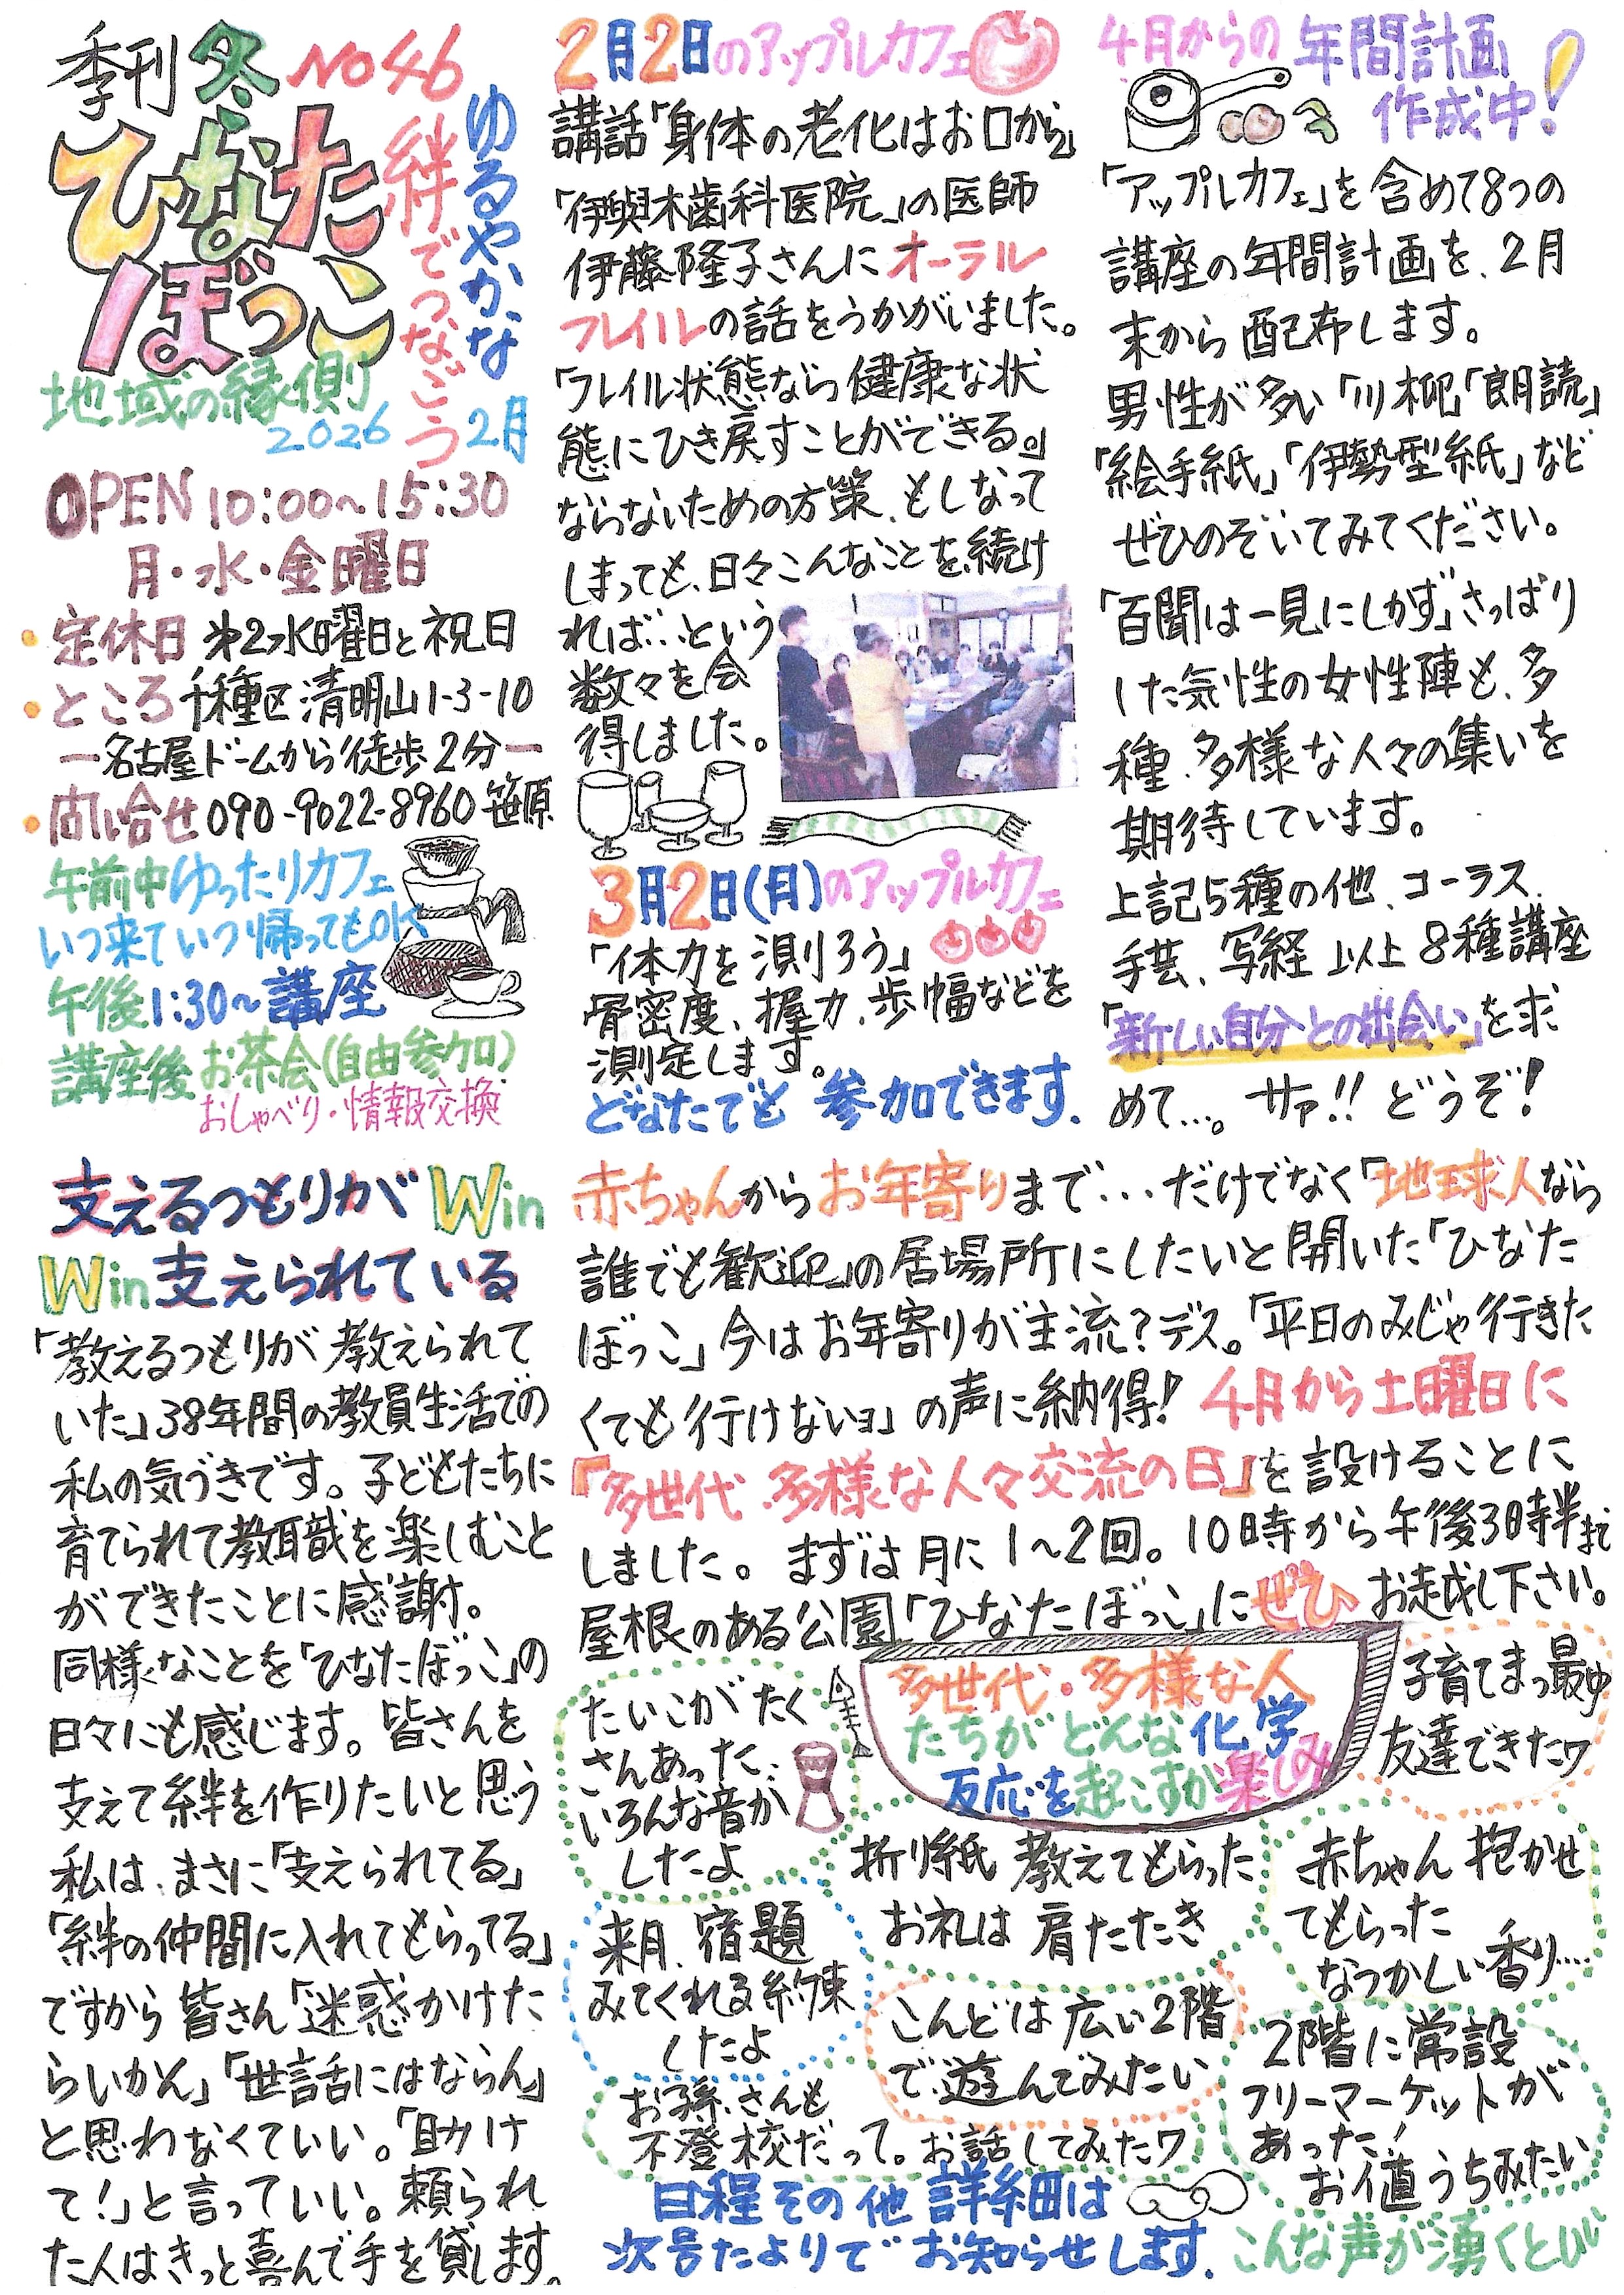 季刊 冬 NO46
ひなた
ぼっこ
ゆるやかな
絆でつなごう
地域の縁側
2026 2月
OPEN 10:00～15:30
月・水・金曜日
定休日 第2水曜日と祝日
ところ 千種区清明山1-3-10
ー名古屋ドームから徒歩2分ー
問い合せ 090-9022-8960 笹原
午前中ゆったりカフェ
いつ来ていつ帰ってもOK
午後1:30～講座
講座後 お茶会(自由参加)
おしゃべり・情報交換
2月2日のアップルカフェ
講話「身体の老化はお口から」
「伊與木歯科医院」の医師
伊藤隆子さんにオーラル
フレイルの話をうかがいました。
「フレイル状態なら健康な状
態にひき戻すことができる。」
ならないための方策、もしなって
しまっても、日々こんなことを続け
れば…という
数々を会
得しました。
3月2日(月)のアップルカフェ
「体力を測ろう」
骨密度、握力、歩幅などを
測定します。
どなたでも 参加できます.
4月からの 年間計画
作成中!
「アップルカフェ」を含めて8つの
講座の年間計画を、2月
末から配布します。
男性が多い「川柳「朗読」
「絵手紙」「伊勢型紙」など
ぜひのぞいてみてください。
「百聞は一見にしかず」さっぱり
した気性の女性陣も、多
種、多様な人々の集いを
期待しています。
上記5種の他、コーラス、
手芸、写経 以上8種講座
「新しい自分との出会い」を求
めて…。サァ!!どうぞ!
支えるつもりが Win
Win 支えられている
「教えるつもりが 教えられて
いた」38年間の教員生活での
私の気づきです。子どもたちに
育てられて教職を楽しむこと
ができたことに感謝。
同様なことを「ひなたぼっこ」の
日々にも感じます。皆さんを
支えて絆を作りたいと思う
私は、まさに「支えられてる」
「絆の仲間に入れてもらってる」
ですから皆さん「迷惑かけた
らいかん」「世話にはならん」
と思わなくていい。「助け
て!」と言っていい。頼られ
た人はきっと喜んで手を貸します。
赤ちゃんからお年寄りまで…だけでなく「地球人なら
誰でも歓迎」の居場所にしたいと開いた「ひなた
ぼっこ」今はお年寄りが主流?デス。「平日のみじゃ行きた
くても行けないョ」の声に納得! 4月から土曜日に
「多世代、多様な人々交流の日」を設けることに
しました。まずは月に1～2回。10時から午後3時半まで
屋根のある公園「ひなたぼっこ」にぜひ お越し下さい。
多世代・多様な人
たちがどんな化学
反応を起こすか楽しみ
たいこがたく
さんあった、
いろんな音が
したよ
子育てまっ最中
友達できたワ
折り紙 教えてもらった
お礼は 肩たたき
赤ちゃん 抱かせ
てもらった
なつかしい香り…
来月、宿題
みてくれる約束
したよ
こんどは 広い2階
で遊んでみたい
2階に常設
フリーマーケットが
あった!
お値うちみたい
お孫さんも
不登校だって。お話してみたワ
日程その他 詳細は
次号たよりで お知らせします.
こんな声が湧くといい